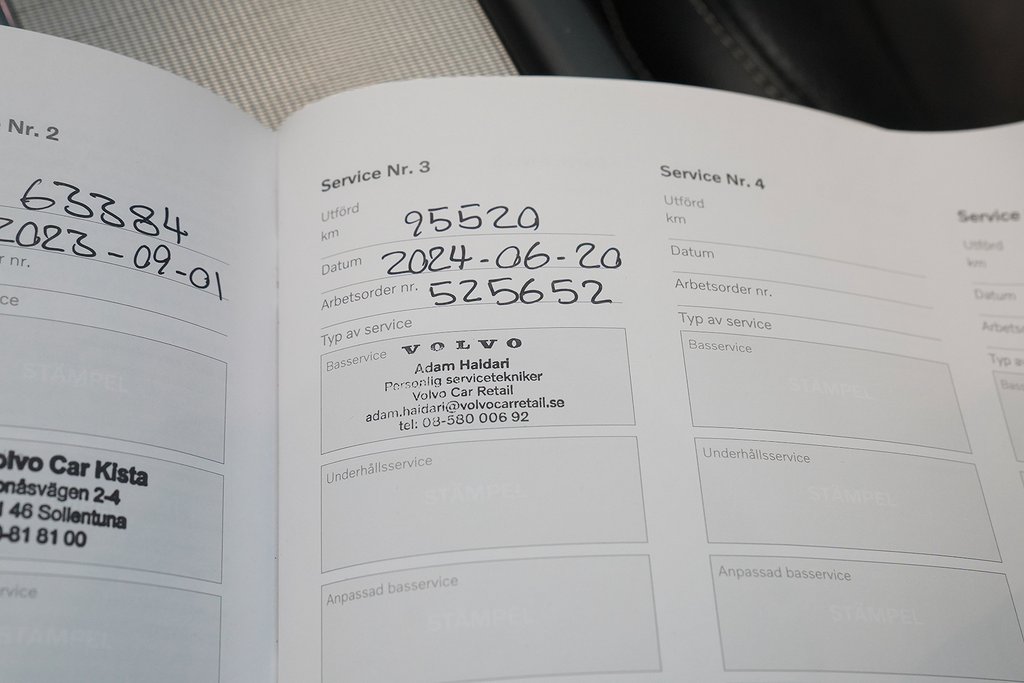 Nr. 2
63384
2023-09-01
nr.
STÄMPEL
Volvo Car Kista
2-4
46 Sollentuna
81 81 00
STÄMPEL
Service Nr. 3
Utförd
km 95520
Datum 2024-06-20
Arbetsorder nr. 525652
Typ av service
Basservice
VOLVO
Adam Haidari
Personlig servicetekniker
Volvo Car Retail
adam.haidari@volvocarretail.se
tel: 08-580 006 92
Underhållsservice
STÄMPEL
Anpassad basservice
STÄMPEL
Service Nr. 4
Utförd
km
Datum
Arbetsorder nr.
Typ av service
Basservice
STÄMPEL
Underhållsservice
STÄMPEL
Anpassad basservice
STÄMPEL
Service
Utförd
km
Datum